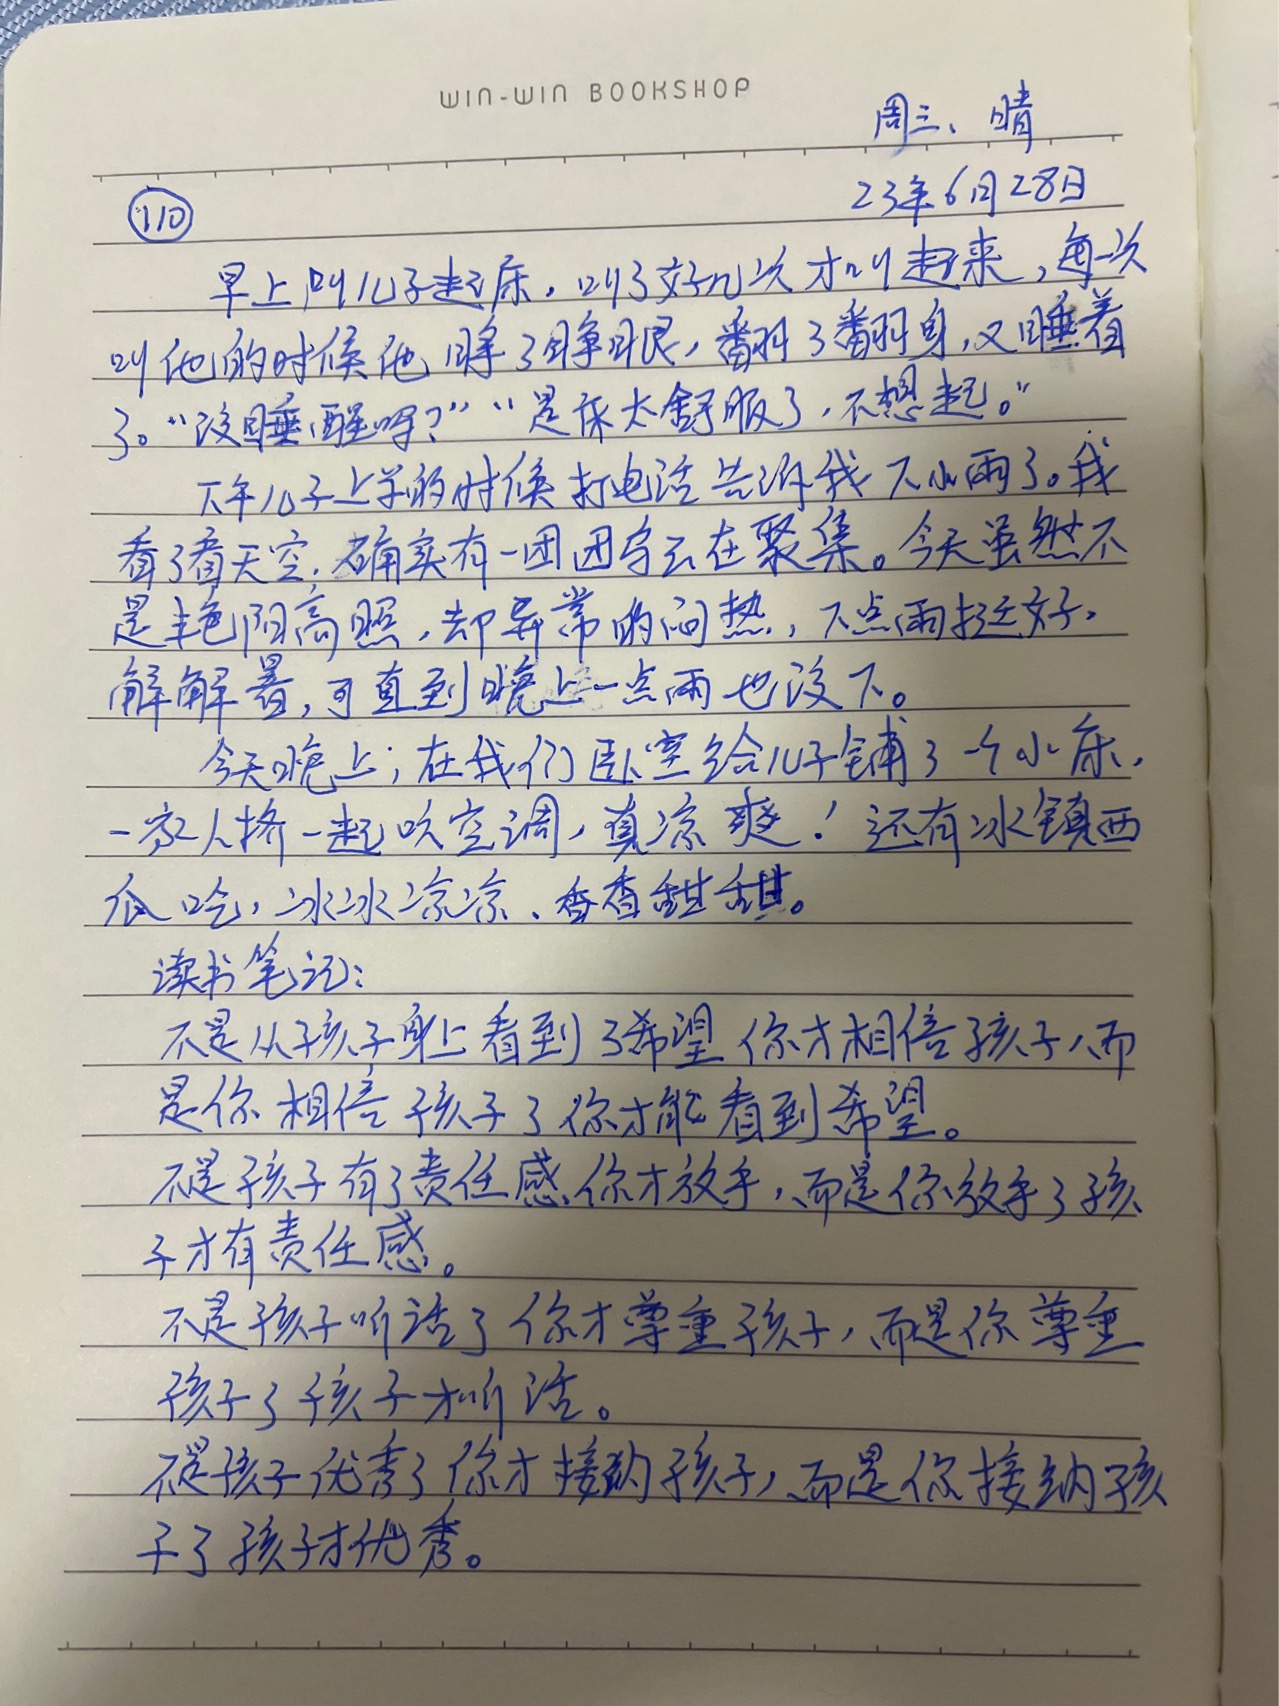 WIN-WIN BOOKSHOP
周三、晴
110
23年6月28日
早上叫儿子起床，叫了好几次才叫起来，每一次
叫他的时候他睁了睁眼，翻了翻身，又睡着
了。“没睡醒吗？”“是床太舒服了，不想起。”
下午儿子上学的时候打电话告诉我下小雨了。我
看了看天空，确实有一团团乌云在聚集。今天虽然不
是艳阳高照，却异常的闷热，下点雨挺好，
解解暑，可直到晚上一点雨也没下。
今天晚上，在我们卧室给儿子铺了一个小床，
一家人挤一起吹空调，真凉爽！还有冰镇西
瓜吃，冰冰凉凉、香香甜甜。
读书笔记：
不是从孩子身上看到了希望你才相信孩子，而
是你相信孩子了你才能看到希望。
不是孩子有了责任感你才放手，而是你放手了孩
子才有责任感。
不是孩子听话了你才尊重孩子，而是你尊重
孩子了孩子才听话。
不是孩子优秀了你才接纳孩子，而是你接纳孩
子了孩子才优秀。